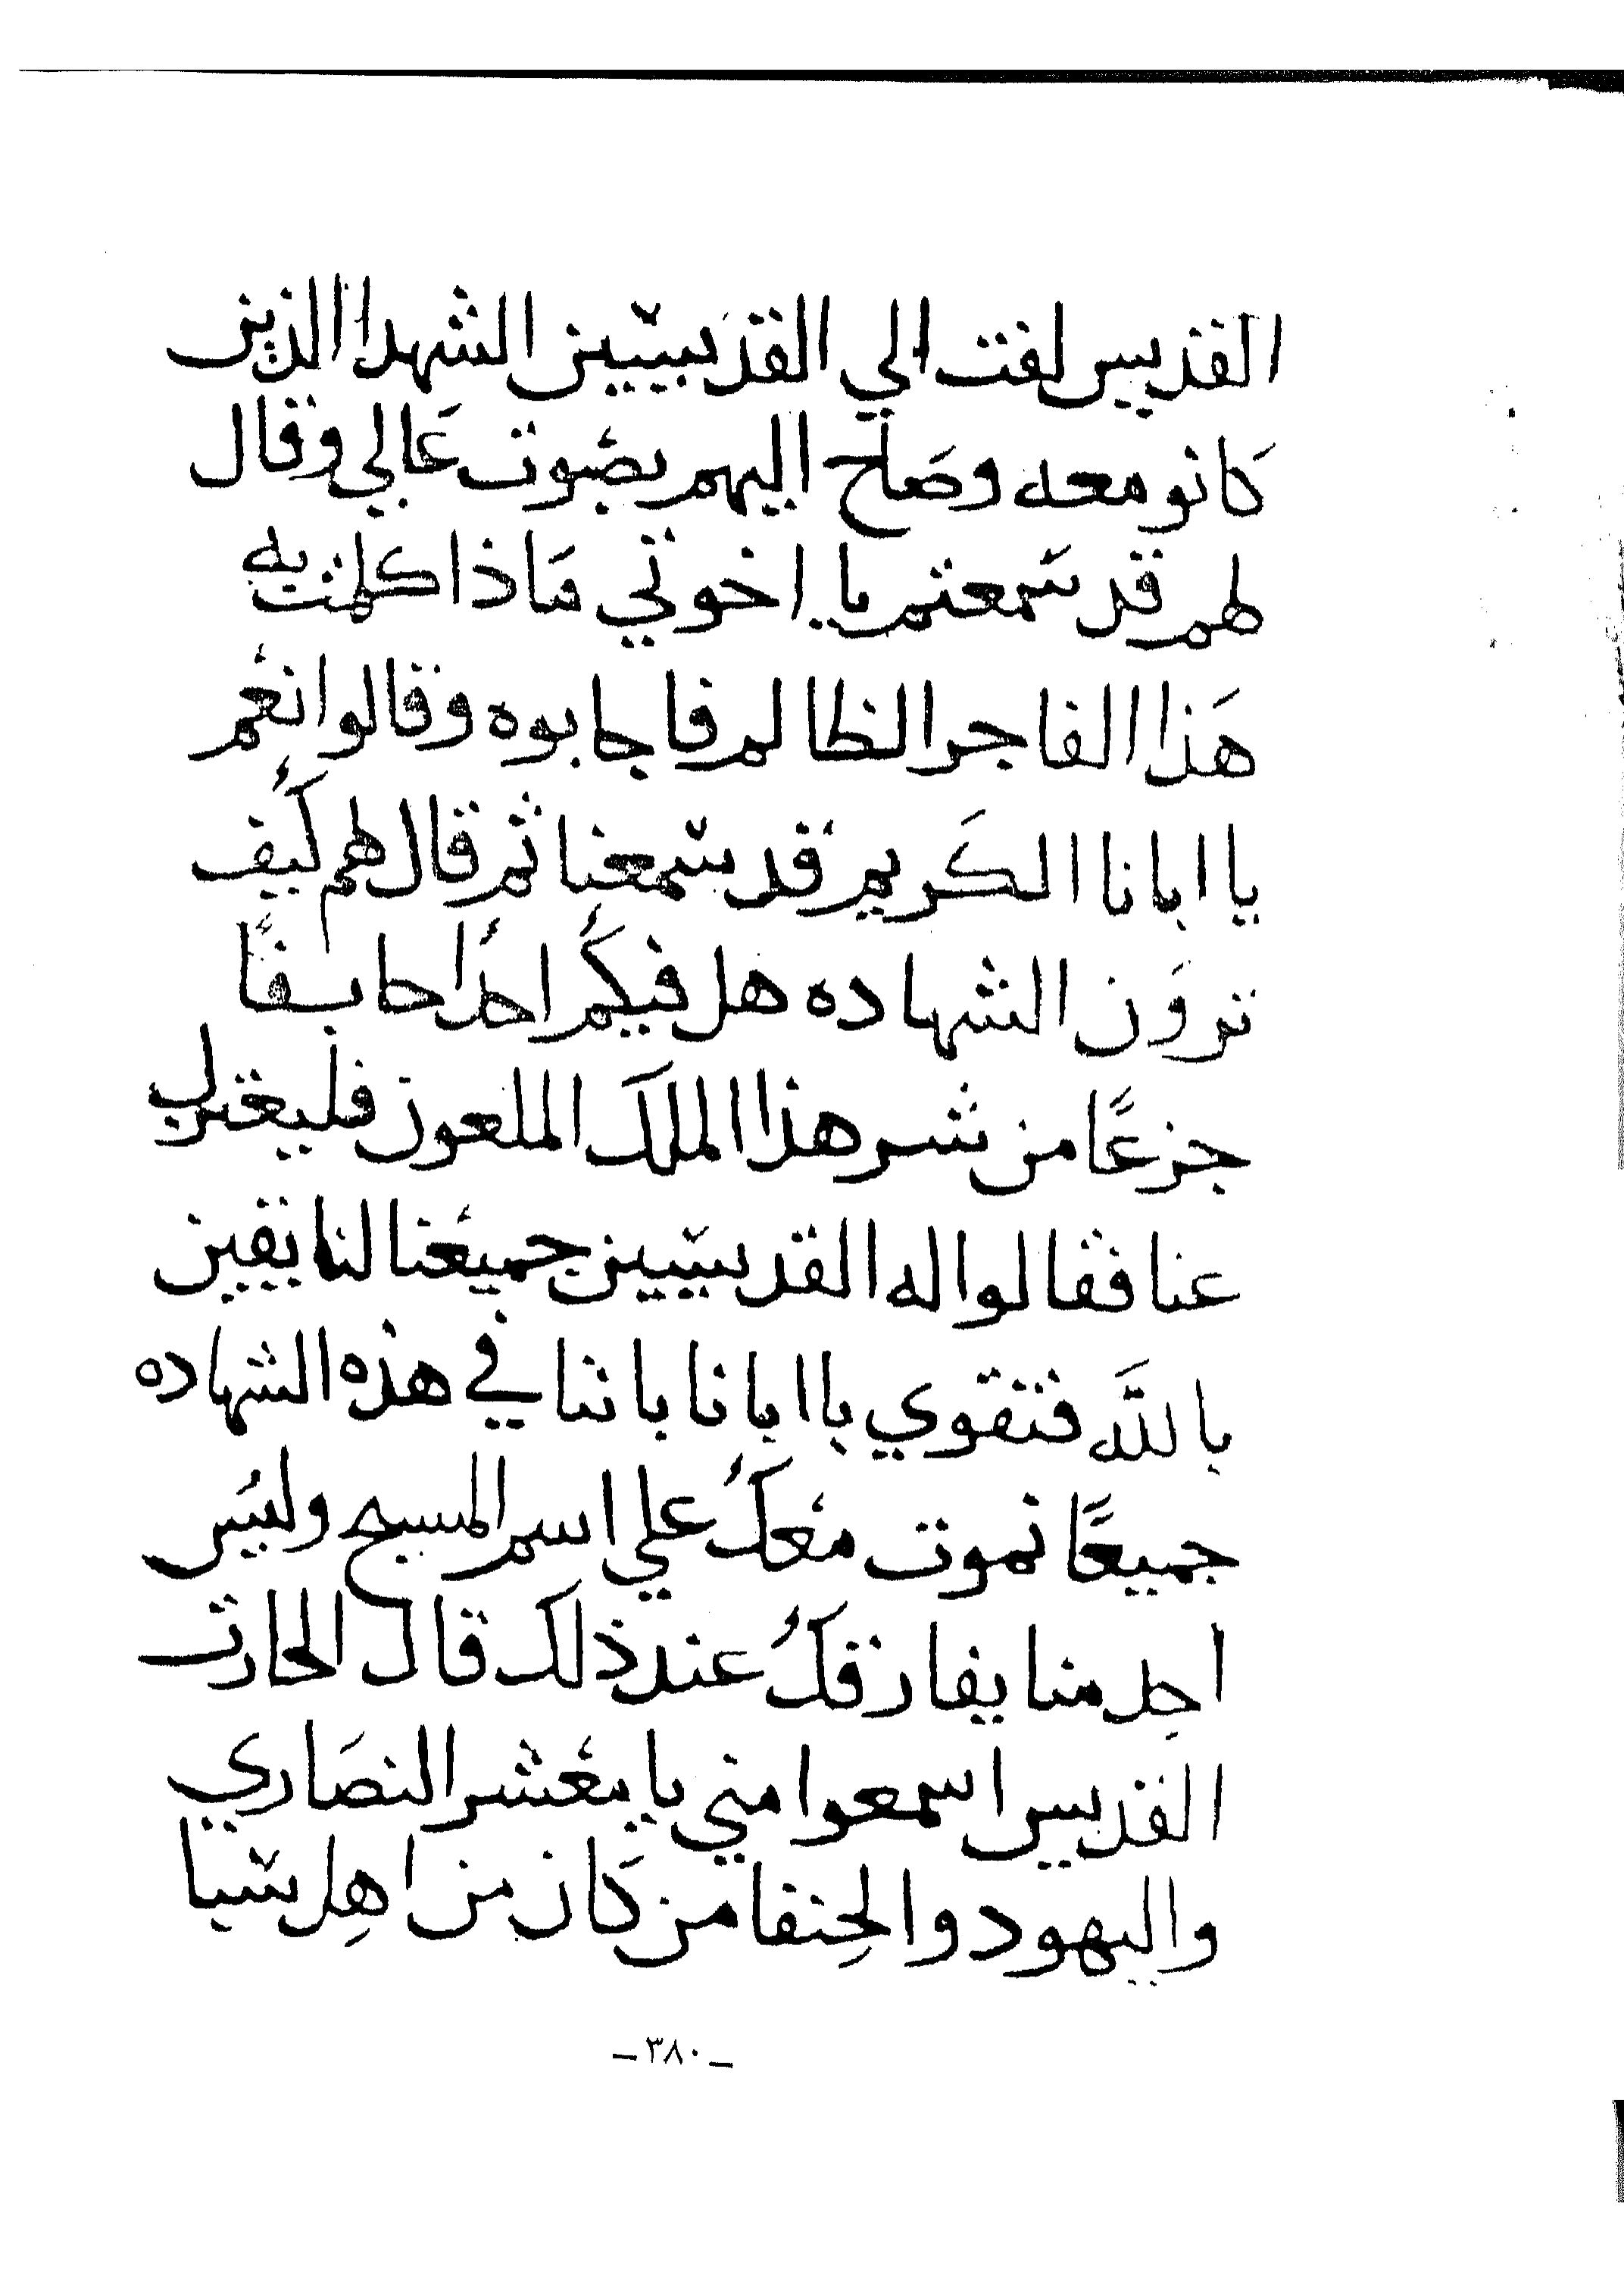 القديس لفت الي القديسيين الشهدا الذين
كانو معه وصاح اليهم بصوت عالي وقال
لهم قد سمعتم يا اخوتي ماذا كلمت به
هذا الفاجر الظالم فاجابوه وقالوا نعم
يا ابانا الكريم قد سمعنا ثم قال لهم كيف
ترون الشهاده هل فيكم احدًا خايفًا
جزعًا من شر هذا الملك الملعون فليعتزل
عنا فقالوا له القديسيين جميعنا لنا يقين
بالله فتقوي يا ابانا باننا في هذه الشهاده
جميعًا نموت معك علي اسم المسيح وليس
احد منا يفارقك عند ذلك قال الحارت
القديس اسمعوا مني يا معشر النصاري
واليهود والحنفا من كان من اهل سبا
ـ ٣٨٠ ـ